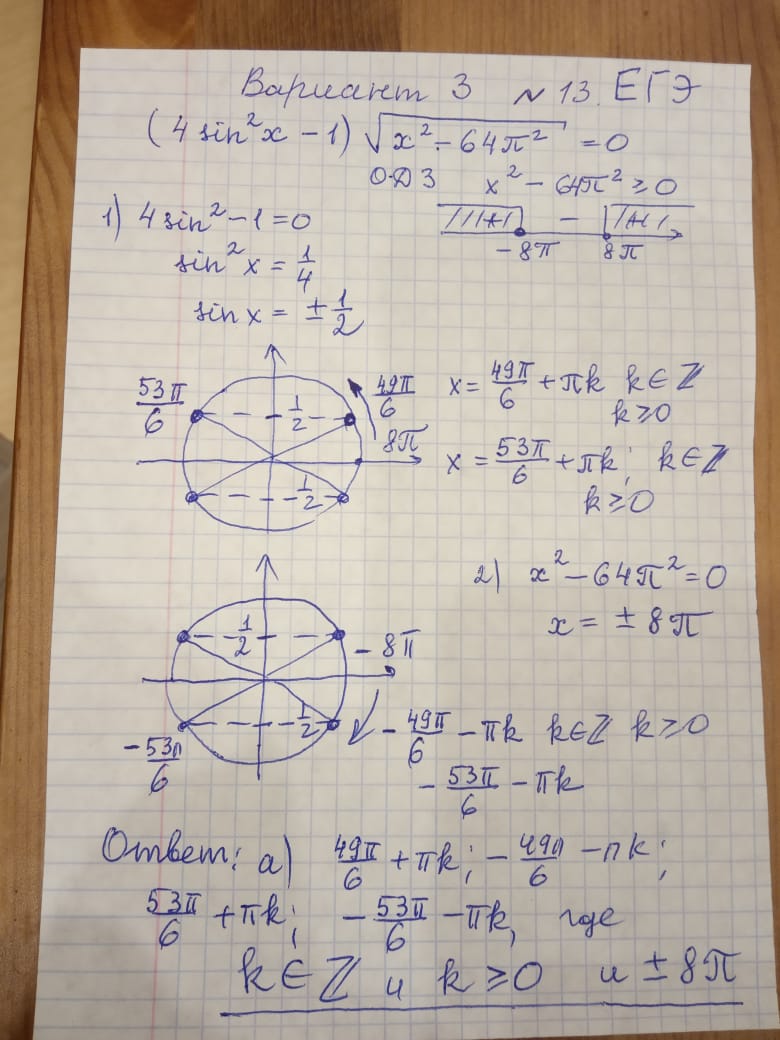 Вариант 3 №13. ЕГЭ
(4 sin²x − 1) √(x² − 64π²) = 0
ОДЗ x² − 64π² ≥ 0
1) 4 sin² − 1 = 0
− 8π − 8π
sin²x = 1/4
sin x = ± 1/2
53π/6 1/2 49π/6
8π
− 1/2
x = 49π/6 + πk k ∈ ℤ
k ≥ 0
x = 53π/6 + πk; k ∈ ℤ
k ≥ 0
2) x² − 64π² = 0
x = ± 8π
1/2 − 8π
− 1/2
− 53π/6
− 49π/6 − πk k ∈ ℤ k ≥ 0
− 53π/6 − πk
Ответ: а) 49π/6 + πk; − 49π/6 − πk;
53π/6 + πk; − 53π/6 − πk, где
k ∈ ℤ и k ≥ 0 и ± 8π